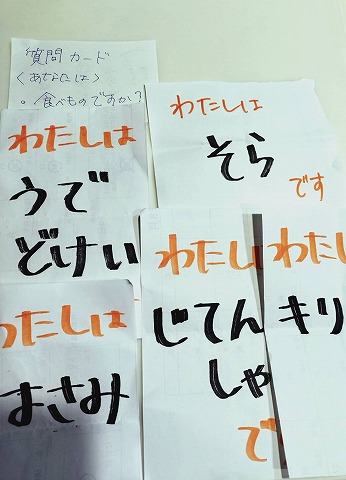 質問カード
〈あなたは〉
・食べものですか?
わたしは
そら
です
わたしは
うで
どけい
わたし
じてん
しゃ
で
わたし
キリ
わたしは
さみ